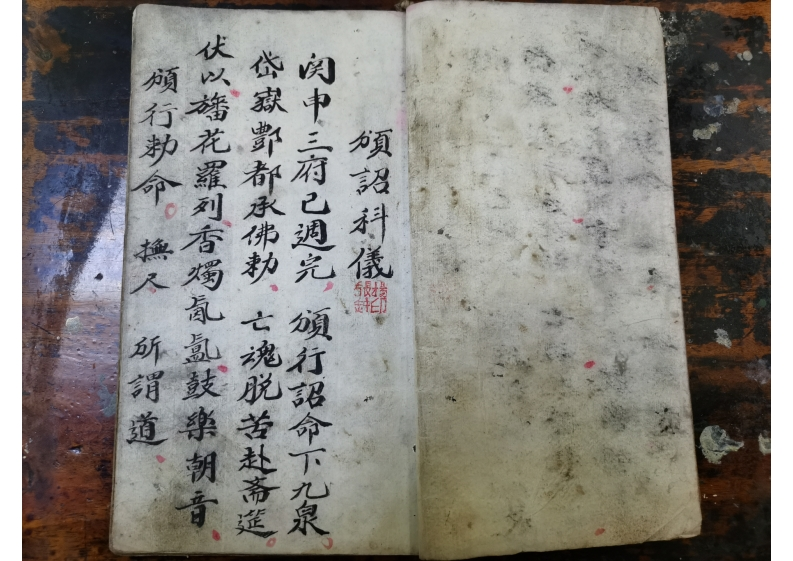 頒詔科儀
関申三府已週完 頒行詔命下九泉
岱嶽酆都承佛勅 亡魂脱苦赴斋筵
伏以旛花羅列香燭氤氳鼓樂朝音
頒行勅命 撫尺 所謂道